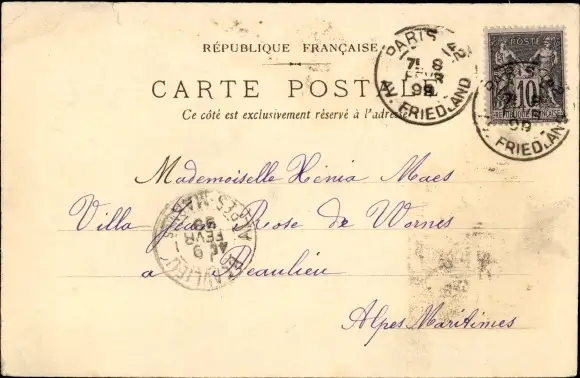 RÉPUBLIQUE FRANÇAISE
CARTE POSTALE
Ce côté est exclusivement réservé à l'adresse
PARIS 42
7E 8
FEVR
99
AV. FRIEDLAND
10
PARIS 42
99
AV. FRIEDLAND
Mademoiselle Xénia Maes
Villa Jean Rose de Wornes
a Beaulieu
Alpes Maritimes
BEAULIEU
9
FEVR
99
ALPES-MAR